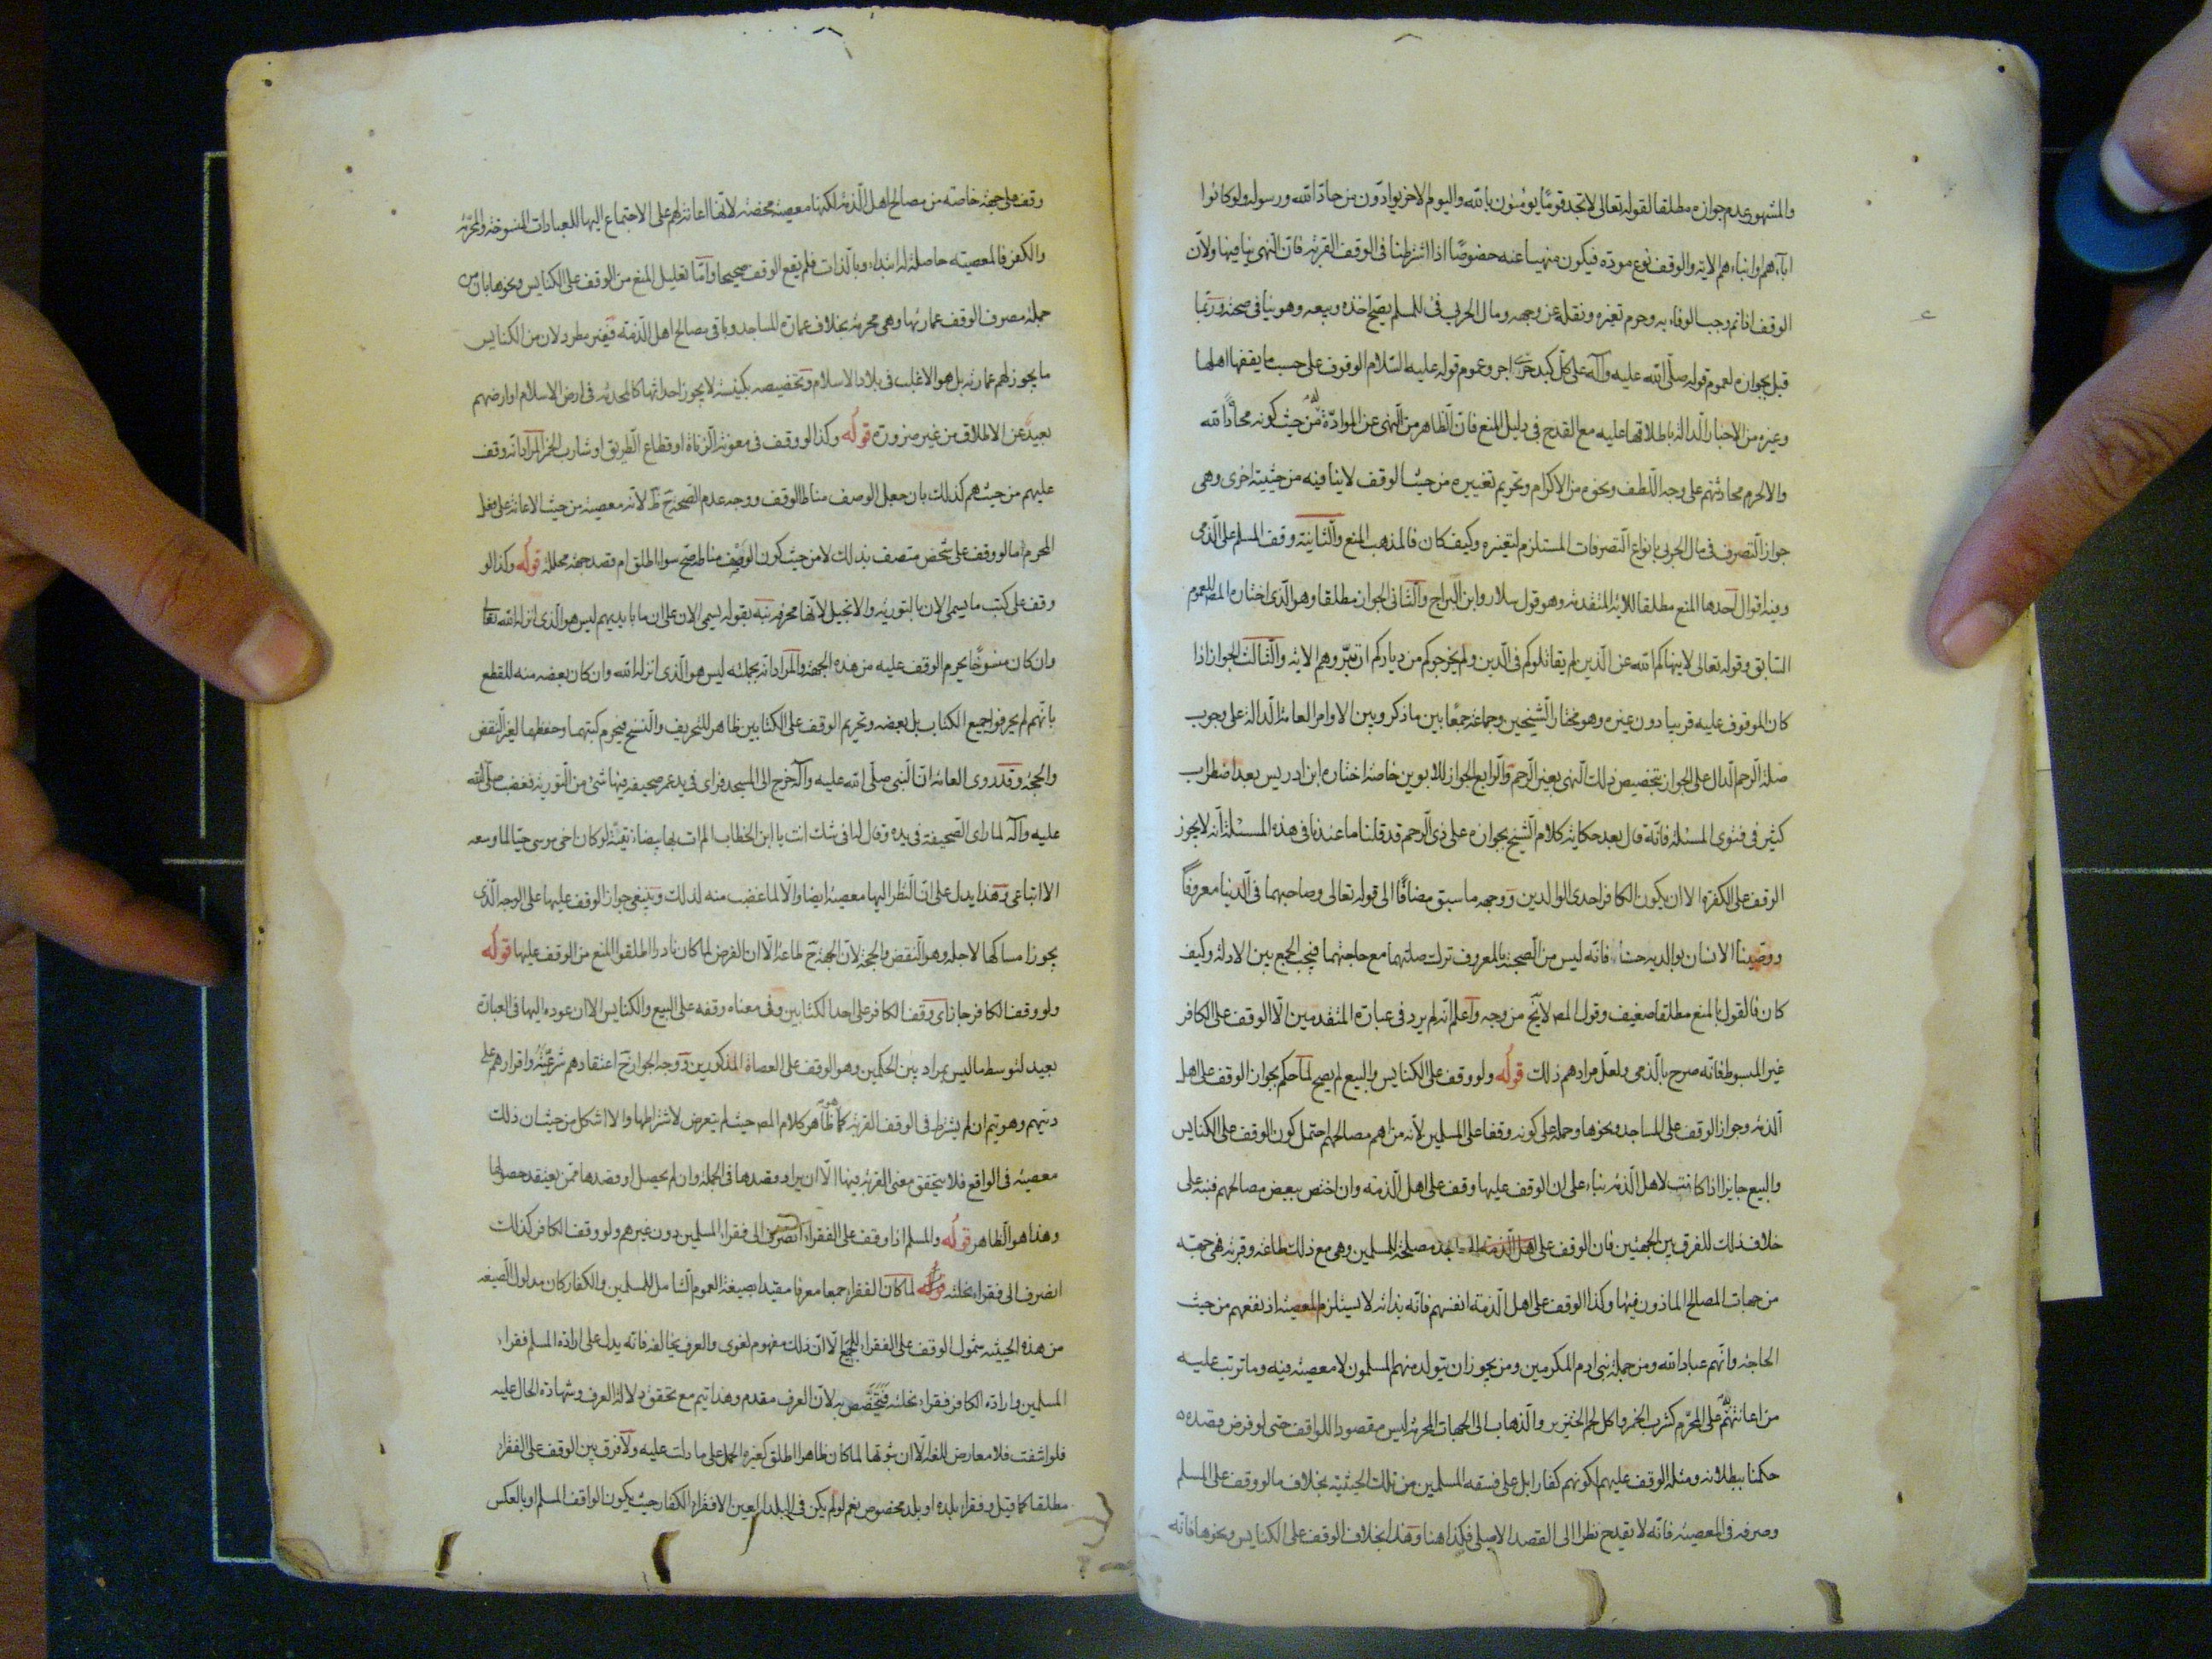 والمشهور عدم جوازه مطلقا لقوله تعالى لا تجد قومًا يؤمنون بالله واليوم الاخر يوادّون من حادّ الله ورسوله ولو كانوا
اباءهم وابناءهم الاية والوقف نوع مودة فيكون منهيا عنه خصوصًا اذا اشترطنا في الوقف القربة فانّ النهى ينافيها ولانّ
الوقف اذا تم وجب الوفاء به وحرم تغيره ونقله عن وجهه ومال الحربى فئ للمسلم يصحّ اخذه وبيعه وهو ينافى صحته وربّما
قيل بجوازه لعموم قوله صلّى الله عليه وآله على كلّ كبد حرّى اجر وعموم قوله عليه السّلام الوقوف على حسب ما يقفها اهلها
وغيره من الاخبار الّدالة باطلاقها عليه مع القدح في دليل المنع فانّ الظاهر من النّهى عن الموادّة من حيث كونه محادّا لله
والا لحرم محادثتهم على وجه اللّطف ونحوه من الاكرام وتحريم تغييره من حيث الوقف لا ينافيه من حيثية اخرى وهى
جواز التّصرف في مال الحربى بانواع التّصرفات المستلزم لتغيره وكيف كان فالمذهب المنع والثّانية وقف المسلم على الذّمى
وفيه اقوال احدها المنع مطلقا للاية المتقدمة وهو قول سلار وابن البراج والثّانى الجواز مطلقا وهو الّذى اختاره المص للعموم
السّابق وقوله تعالى لا ينهاكم الله عن الّذين لم يقاتلوكم في الدّين ولم يخرجوكم من دياركم ان تبرّوهم الاية والثّالث الجواز اذا
كان الموقوف عليه قريبا دون غيره وهو مختار الشّيخين وجماعة جمعًا بين ما ذكر وبين الاوامر العامة الّدالة على وجوب
صلة الرّحم الدّال على الجواز بتخصيص ذلك النّهى بغير الرّحم والرّابع الجواز للابوين خاصة اختاره ابن ادريس بعد اضطراب
كثير في فتوى المسئلة فانّه قال بعد حكاية كلام الشّيخ بجوازه على ذى الرّحم قد قلنا ما عندنا في هذه المسئلة انّه لا يجوز
الوقف على الكفرة الا ان يكون الكافر احدى الوالدين ووجهه ما سبق مضافًا الى قوله تعالى وصاحبهما في الدّنيا معروفًا
ووصّينا الانسان بوالديه حسنا فانّه ليس من الصّحبة بالمعروف ترك صلتهما مع حاجتهما فيجب الجمع بين الادلة وكيف
كان فالقول بالمنع مطلقا ضعيف وقول المص لا يخ من وجه واعلم انّه لم يرد في عبارة المتقدمين الّا الوقف على الكافر
غير المبسوط فانّه صرح بالذّمى ولعلّ مرادهم ذلك قوله ولو وقف على الكنايس والبيع لم يصح لما حكم بجواز الوقف على اهل
الذّمة وجواز الوقف على المساجد ونحوها وحمله على كونه وقفا على المسلمين لانّه من اهم مصالحهم احتمل كون الوقف على الكنايس
والبيع جايزا اذا كانت لاهل الذّمة بناء على ان الوقف عليها وقف على اهل الذّمة وان اختص ببعض مصالحهم فنبه على
خلاف ذلك للفرق بين الجهتين فان الوقف على المساجد مصلحة للمسلمين وهى مع ذلك طاعة وقربة فهى جهة
من جهات المصالح الماذون فيها وكذا الوقف على اهل الذّمة انفسهم فانّه بذاته لا يستلزم المعصية اذ نفعهم من حيث
الحاجة وانّهم عباد الله ومن جملة بنى ادم المكرمين ومن يجوز ان يتولد منهم المسلمون لا معصية فيه وما ترتب عليه
من اعانتهم على المحرّم كشرب الخمر واكل لحم الخنزير والذّهاب الى الجهات المحرمة ليس مقصودا للواقف حتى لو فرض قصده
حكمنا ببطلانه ومثله الوقف عليهم لكونهم كفارا بل على فسقة المسلمين من تلك الحيثية بخلاف ما لو وقف على المسلم
وصرفه في المعصية فانّه لا يقدح نظرا الى القصد الاصلى فكذا هنا وهذا بخلاف الوقف على الكنايس ونحوها فانّه
وقف على جهة خاصة من مصالح اهل الذّمة لكنها معصية محضة لانّها اعانة لهم على الاجتماع اليها للعبادات المنسوخة والمحرّمة
والكفر فالمعصية حاصلة له ابتداء وبالذّات فلم يقع الوقف صحيحا وامّا تعليل المنع من الوقف على الكنايس ونحوها بان من
جملة مصرف الوقف عمارتها وهى محرمة بخلاف عمارة المساجد وباقى مصالح اهل الذّمة فغير مطرد لان من الكنايس
ما يجوز لهم عمارته بل هو الاغلب في بلاد الاسلام وتخصيصه بكنيسة لا يجوز احداثها كالمحدثة في ارض الاسلام او ارضهم
بعيد عن الاطلاق من غير ضرورة قوله وكذا لو وقف في معونة الزّناة او قطاع الطّريق او شارب الخمر المراد انّه وقف
عليهم من حيث هم كذلك بان جعل الوصف مناط الوقف ووجه عدم الصّحة ح ظ لانّه معصية من حيث الاعانة على فعل
المحرم اما لو وقف على شخص متصف بذلك لا من حيث كون الوصف مناطه صح سوا اطلق ام قصد جهة محللة قوله وكذا لو
وقف على كتب ما يسمى الان بالتورية والانجيل لانّها محرفة نبه بقوله يسمى الان على ان ما بايديهم ليس هو الّذى انزله الله تعا
وان كان منسوخًا يحرم الوقف عليه من هذه الجهة والمراد انّه بجملته ليس هو الّذى انزله الله وان كان بعضه منه للقطع
بانّهم لم يحرفوا جميع الكتاب بل بعضه وتحريم الوقف على الكتابين ظاهر للتحريف والنّسخ فيحرم كتبهما وحفظهما لغير النّقض
والحجة وقد روى العامة انّ النّبى صلّى الله عليه وآله خرج الى المسجد فراى في يد عمر صحيفة فيها شئ من التّورية فغضب صلّى الله
عليه وآله لما راى الصّحيفة في يده وقال له افى شك انت يا ابن الخطاب الم ات بها بيضاء نقيّة لو كان اخى موسى حيّا لما وسعه
الا اتباعى وهذا يدل على انّ النّظر اليها معصية ايضا والّا لما غضب منه لذلك وينبغى جواز الوقف عليها على الوجه الّذى
يجوز امساكها لاجله وهو النّقض والحجة لانّ الجهة ح طاعة الّا ان الفرض لما كان نادرا اطلقوا المنع من الوقف عليها قوله
ولو وقف الكافر جاز اى وقف الكافر على احد الكتابين وفى معناه وقفه على البيع والكنايس الا ان عوده اليها في العبارة
بعيد لتوسط ما ليس بمراد بين الحكمين وهو الوقف على العصاة المذكورين ووجه الجواز ح اعتقادهم شرعيّته واقرارهم على
دينهم وهو يتم ان لم يشترط في الوقف القربة كما هو ظاهر كلام المص حيث لم يتعرض لاشتراطها والا اشكل من حيث ان ذلك
معصية في الواقع فلا يتحقق معنى القربة فيها الّا ان يراد قصدها في الجملة وان لم يحصل او قصدها ممّن يعتقد حصولها
وهذا هو الظّاهر قوله والمسلم اذا وقف على الفقراء انصرف الى فقراء المسلمين دون غيرهم ولو وقف الكافر كذلك
انصرف الى فقراء نحلته لما كان الفقراء جمعا معرفا مفيدا بصيغة العموم الشّامل للمسلمين والكفار كان مدلول الصّيغة
من هذه الحيثية شمول الوقف على الفقراء للجميع الّا انّ ذلك مفهوم لغوى والعرف يخالفه فانّه يدل على ارادة المسلم فقراء
المسلمين وارادة الكافر فقراء نحلته فيتخصّص به لانّ العرف مقدم وهذا يتم مع تحقق دلالة العرف وشهادة الحال عليه
فلو انتفت فلا معارض للغة الّا ان ثبوتها لما كان ظاهرا اطلق كغيره الحمل على ما دلت عليه ولا فرق بين الوقف على الفقراء
مطلقا كما قيل وفقراء بلده او بلد مخصوص نعم لو لم يكن في البلد المعين الا فقراء الكفار حيث يكون الواقف المسلم او بالعكس